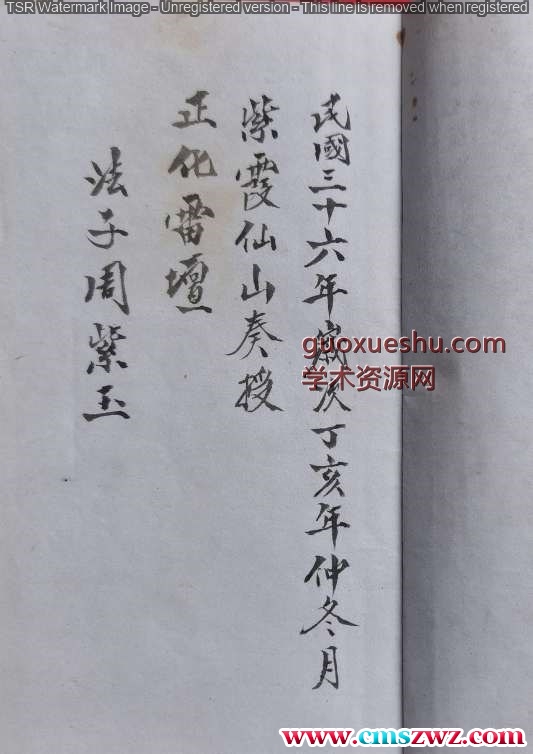 TSR Watermark Image - Unregistered version - This line is removed when registered
民國三十六年歲次丁亥年仲冬月
紫霞仙山奏授
正化雷壇
法子周紫玉
guoxueshu.com
学术资源网
www.cmszwz.com